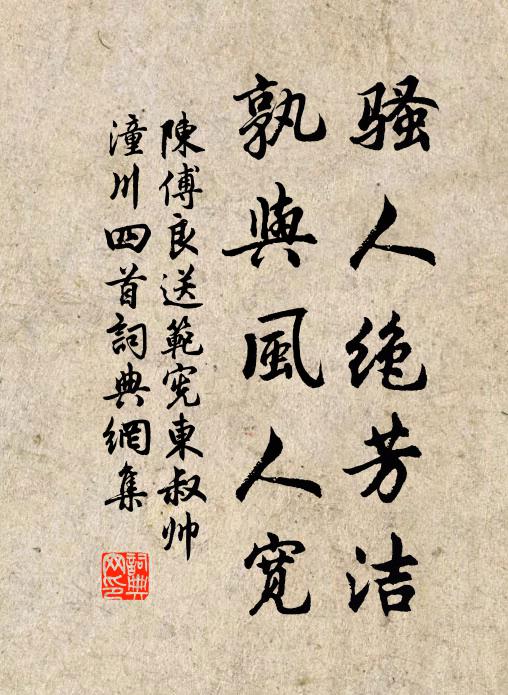 骚人绝芳洁
孰與風人寬
陳傅良送範宪東叔帅
潼川四首詞典網集
詞典
网印